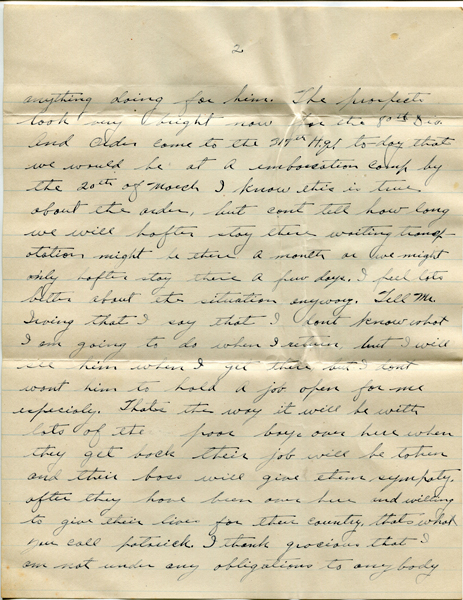 2
anything doing for him. The prospects
look very bright now for the 80th Div.
And order come to the 317th Hq to-day that
we would be at a embarcation camp by
the 20th of March I know this is true
about the order, but cant tell how long
we will hafter stay there waiting transp
otation might be there a month or we might
only hafter stay there a few days. I feel lots
better about the situation anyway. Tell Mr
Irving that I say that I dont know what
I am going to do when I return but I will
see him when I get there but I dont
want him to hold a job open for me
especialy. Thats the way it will be with
lots of the poor boys over here when
they get back their job will be taken
and their boss will give them sympaty.
after they have been over here and willing
to give their lives for their country, thats what
you call patriick. I thank gracious that I
am not under any obligations to anybody